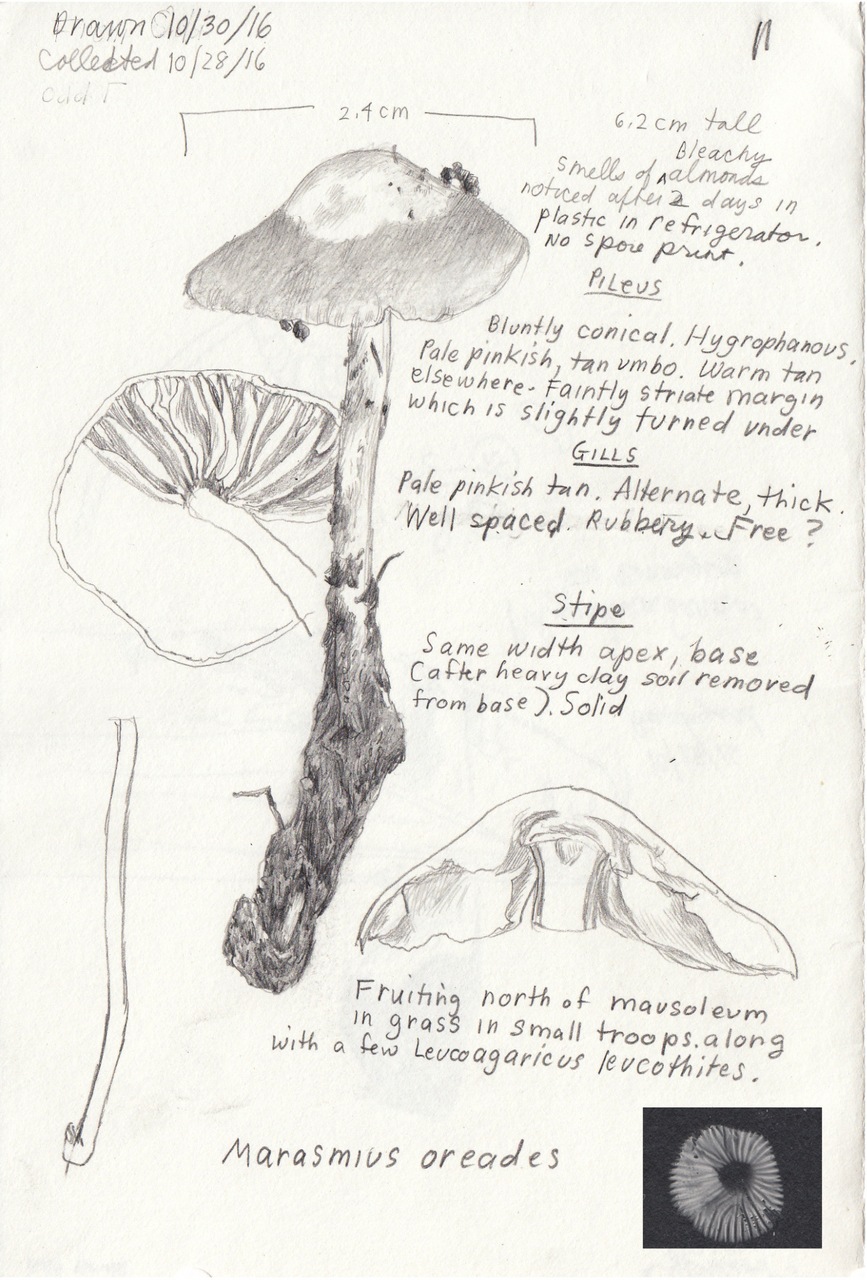 Drawn 10/30/16
Collected 10/28/16
11
2.4 cm
6.2 cm tall
Bleachy
smells of ^ almonds
noticed after 2 days in
plastic in refrigerator.
No spore print.
Pileus
Bluntly conical. Hygrophanous.
Pale pinkish, tan umbo. Warm tan
elsewhere. Faintly striate margin
which is slightly turned under
GILLS
Pale pinkish tan. Alternate, thick.
Well spaced. Rubbery. Free?
Stipe
Same width apex, base
(after heavy clay soil removed
from base). Solid
Fruiting north of mausoleum
in grass in small troops. along
with a few Leucoagaricus leucothites.
Marasmius oreades